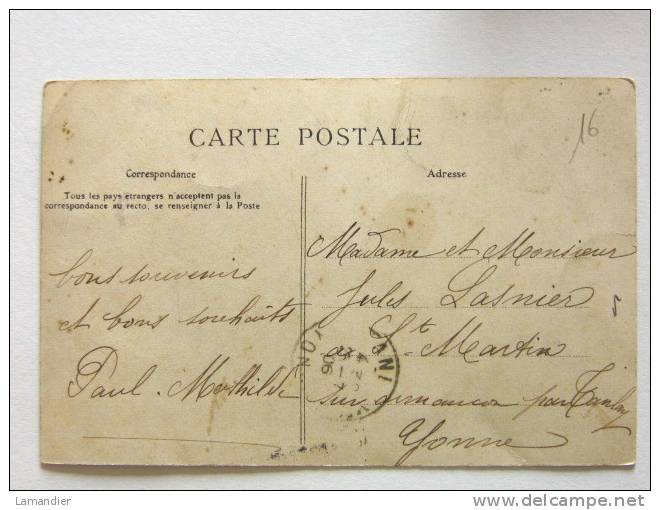 16
CARTE POSTALE
Correspondance
Tous les pays étrangers n'acceptent pas la
correspondance au recto, se renseigner à la Poste
bons souvenirs
et bons souhaits
Paul - Mathilde
Adresse
Madame et Monsieur
Jules Lasnier
à St Martin
sur armancon par Tanlay
Yonne
Lamandier
http://www.delcampe.net